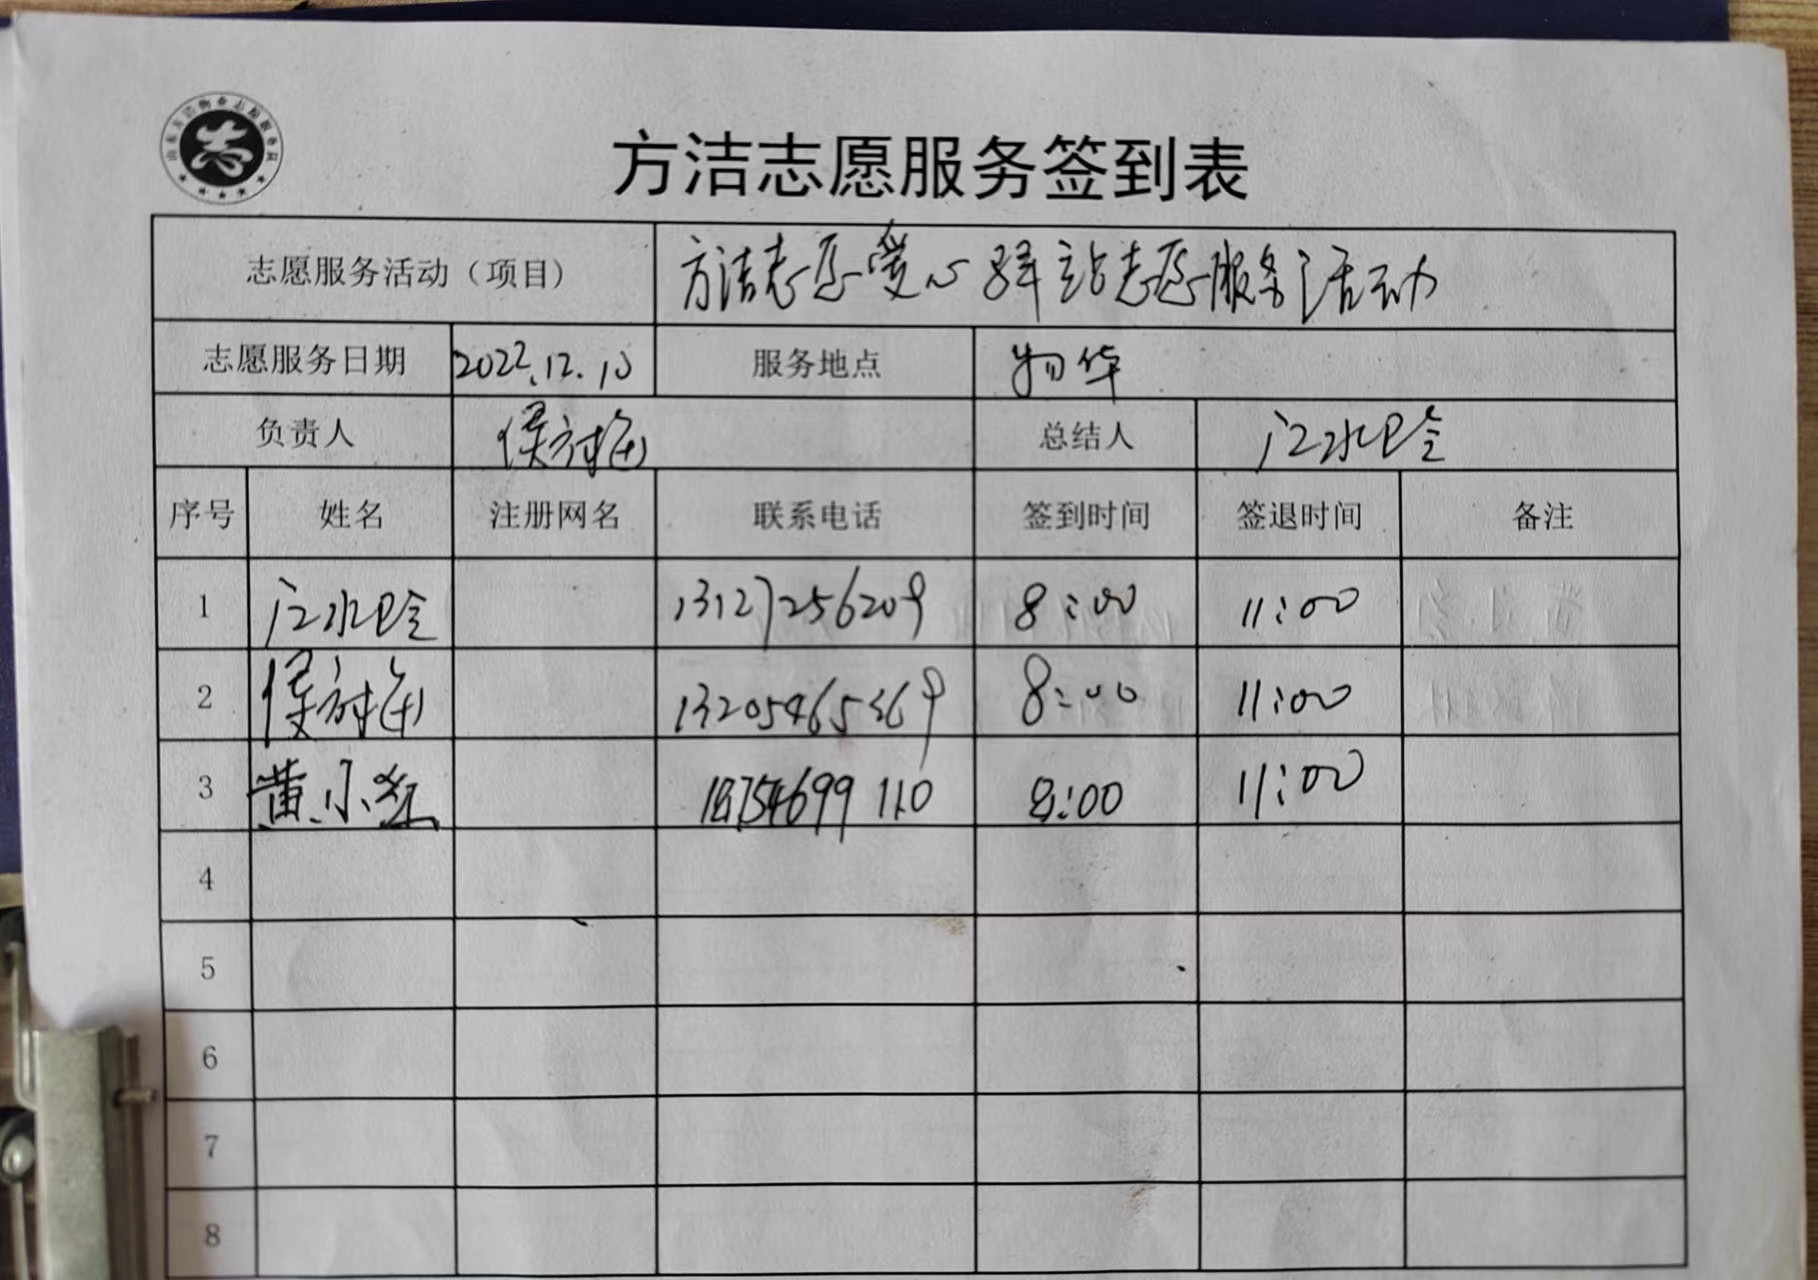 方洁志愿服务签到表
志愿服务活动（项目） 方洁志愿爱心驿站志愿服务活动
志愿服务日期 2022.12.10 服务地点 物华
负责人 侯方梅 总结人 江水玲
序号 姓名 注册网名 联系电话 签到时间 签退时间 备注
1 江水玲 13127256209 8:00 11:00
2 侯方梅 13205465369 8:00 11:00
3 黄小红 8:00 11:00
4
5
6
7
8